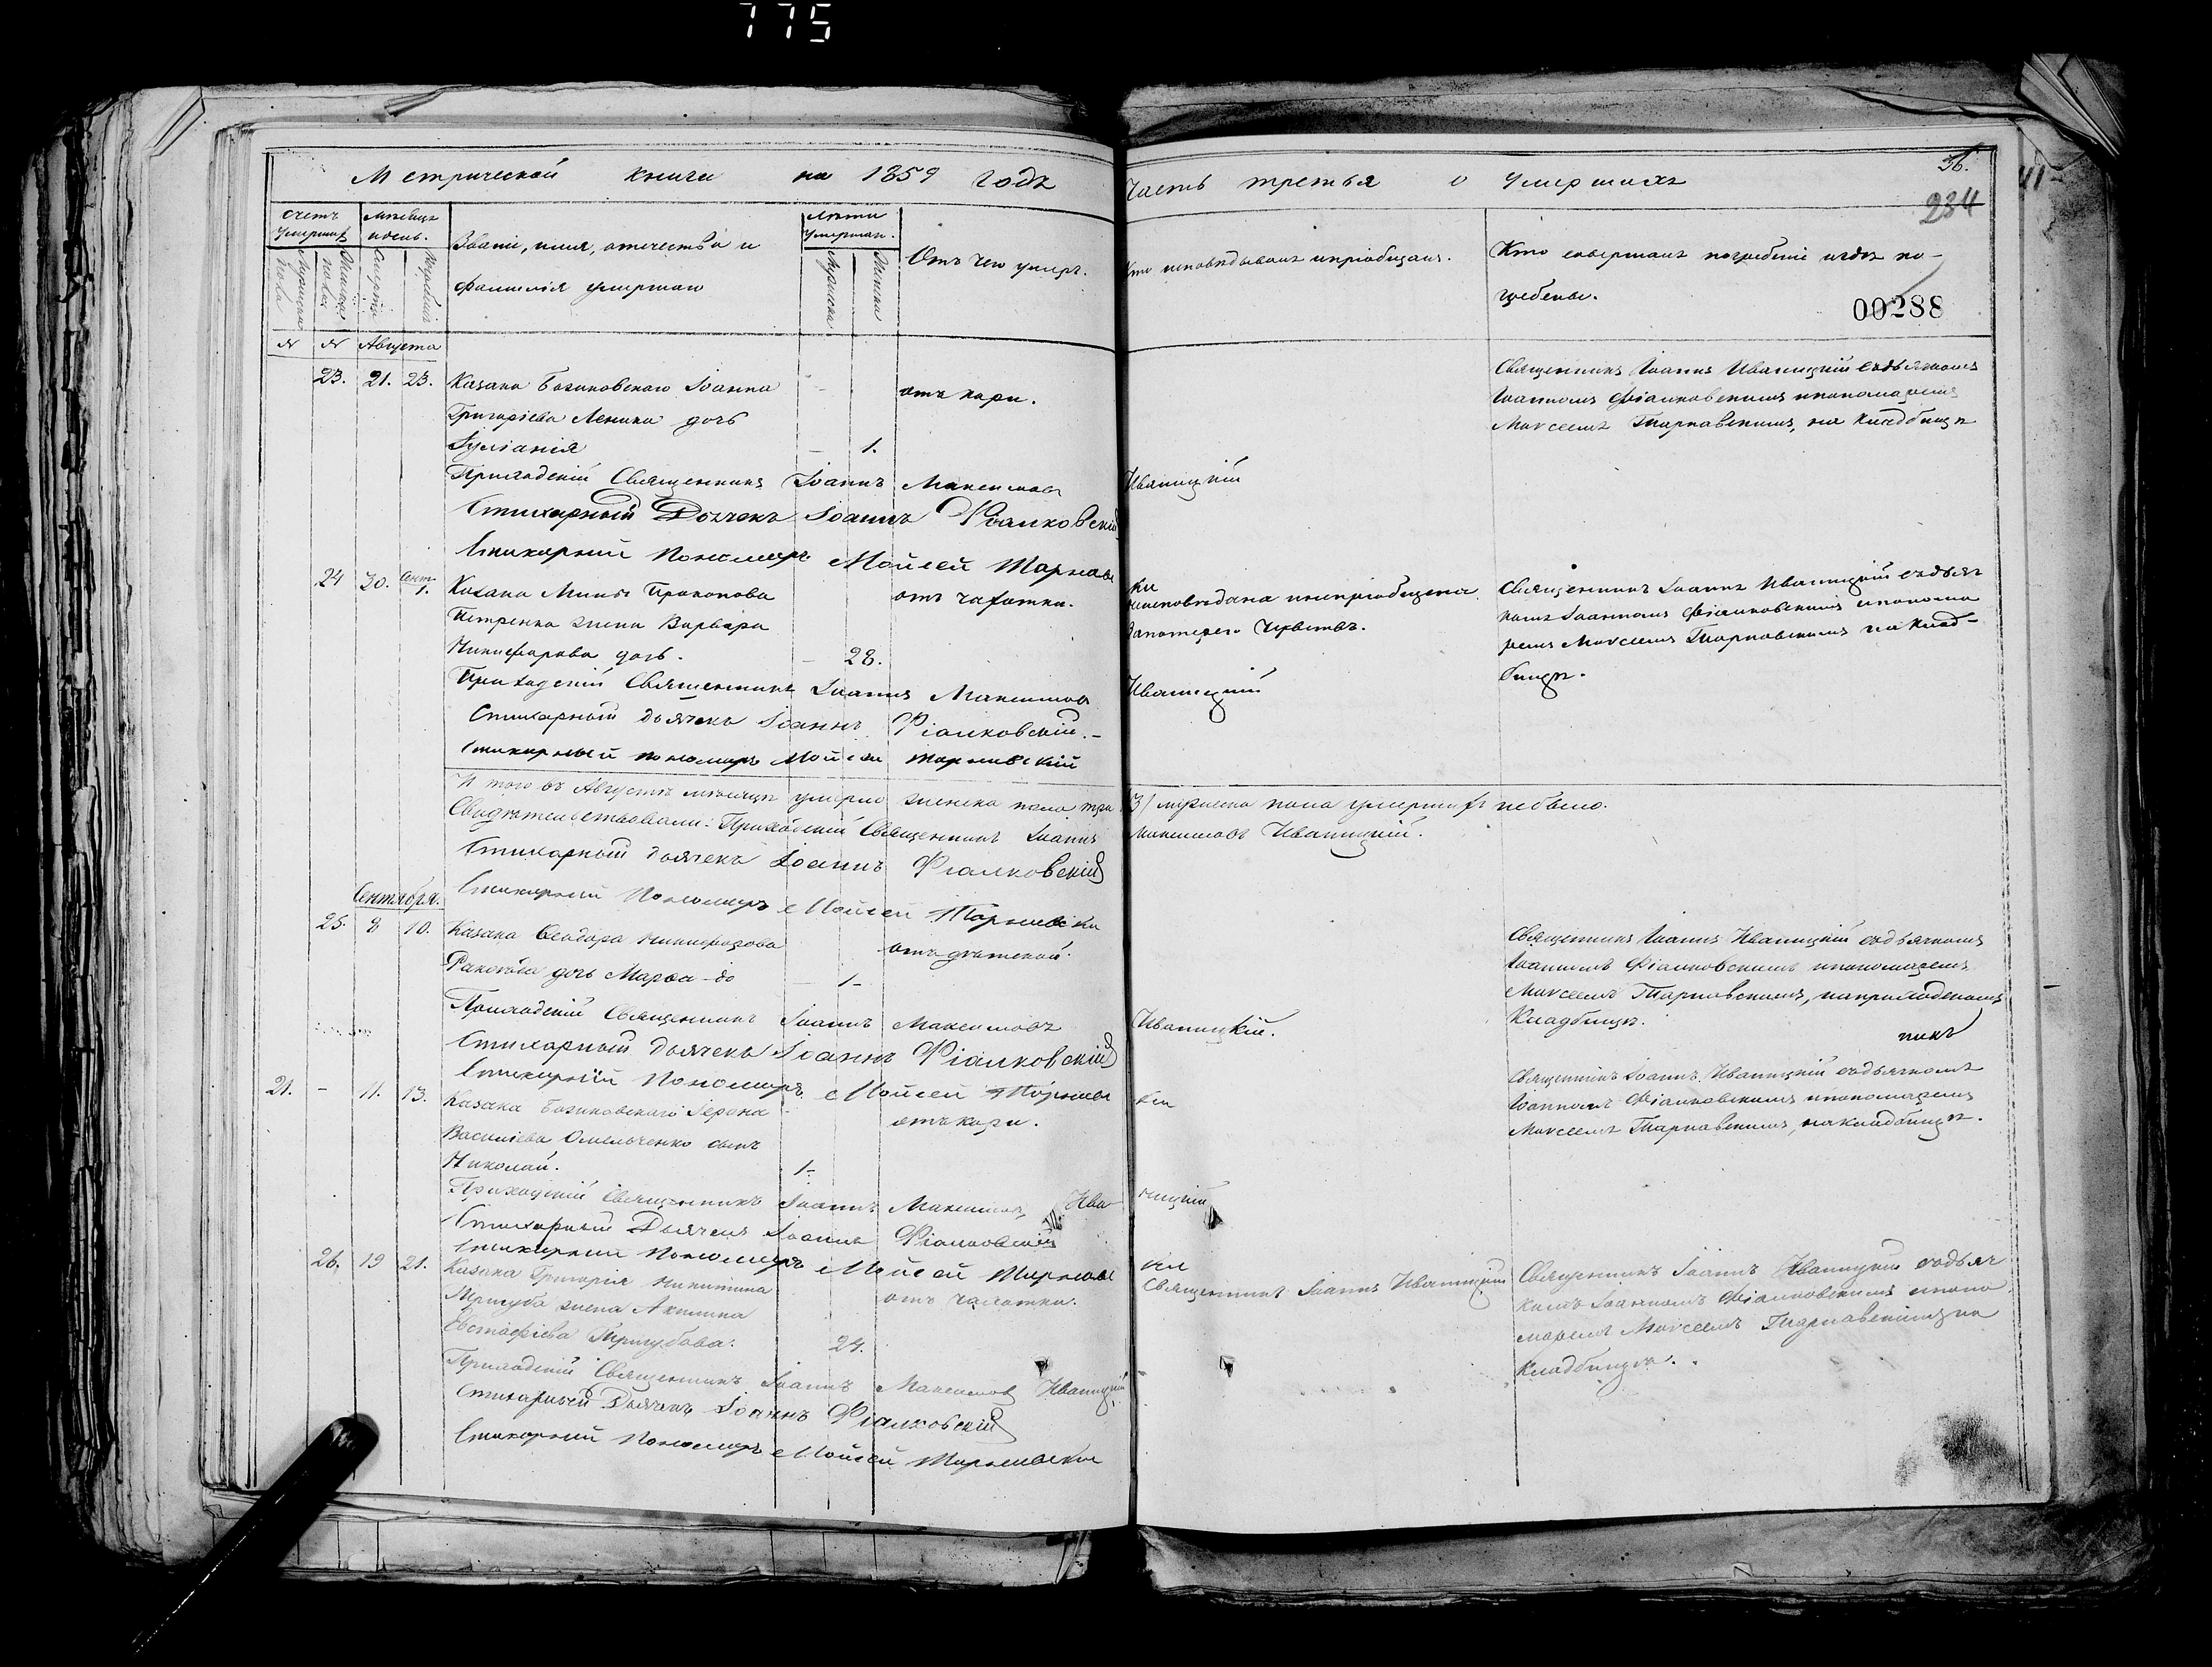 775
Метрической книги на 1859 годъ
Часть третья о умершихъ
36.
234
счетъ умершихъ
Мужеска пола
Женска пола
мѣсяцъ и день.
Смерти
Погребенія
Званіе, имя, отечество и
фамилія умершаго
лѣта умершаго.
Мужеска
Женска
Отъ чего умеръ.
Кто исповѣдывалъ и пріобщалъ.
Кто совершалъ погребеніе и гдѣ по-
гребены.
00288
№ № Августа
23. 21. 23. Козака Іоанна отъ кори.
Григоріева дочь
Іуліанія — 1.
Священникъ Іоаннъ Иваницкій съ дьячкомъ
Іоанномъ Фіалковскимъ и пономаремъ
Моѵсеемъ Тарнавскимъ, на кладбищѣ
Приходскій Священникъ Іоаннъ Максимовъ Иваницкій
Стихарный Дьячекъ Іоаннъ Фіалковскій
Стихарный Пономарь Мойсей Тарнавски
24 30. Сент. 1. Козака Мины Прокопова отъ чахотки.
Петренка жена Варвара
Никифорова дочь. — 28.
неисповѣдана и непріобщена
за потерею чувствъ.
Священникъ Іоаннъ Иваницкій съ дьяч
комъ Іоанномъ Фіалковскимъ и понома
ремъ Моѵсеемъ Тарнавскимъ на клад-
бищѣ.
Приходскій Священникъ Іоаннъ Максимовъ Иваницкій
Стихарный дьячекъ Іоаннъ Фіалковскій.-
Стихарный пономарь Мойсей Тарнавскій
Итого въ Августѣ мѣсяцѣ умерло женска пола три 3) мужеска пола умершихъ небыло.
Свидѣтельствовали: Приходскій Священникъ Іоаннъ Максимовъ Иваницкій.
Стихарный дьячекъ Іоаннъ Фіалковскій
Стихарный Пономарь Мойсей Тарнавски
Сентября.
25. 8 10. Козака Ѳеодора Никифорова отъ дѣтской.
дочь Марѳа — 1-
Священникъ Іоаннъ Иваницкій съ дьячкомъ
Іоанномъ Фіалковскимъ и пономаремъ
Моѵсеемъ Тарнавскимъ, на приходскомъ
Кладбищѣ.
Приходскій Священникъ Іоаннъ Максимовъ Иваницкій.
Стихарный дьячекъ Іоаннъ Фіалковскій
Стихарный Пономарь Мойсей Тарнавски
21. - 11. 13. Козака отъ кори.
Василіева Омельченко сынъ
Николай. 1-
никъ
Священникъ Іоаннъ Иваницкій съ дьячкомъ
Іоанномъ Фіалковскимъ и пономаремъ
Моѵсеемъ Тарнавскимъ, на кладбищѣ.
Приходскій Священникъ Іоаннъ Максимовъ Иваницкій
Стихарный Дьячекъ Іоаннъ Фіалковскій
Стихарный Пономарь Мойсей Тарнавски
26. 19 21. Козака Григорія Никитина отъ чахотки.
жена Акилина
Евстафіева Тригубова. 24.
Священникъ Іоаннъ Иваницкій
Священникъ Іоаннъ Иваницкій съ дьяч
комъ Іоанномъ Фіалковскимъ и поно
маремъ Моѵсеемъ Тарнавскимъ на
Кладбищѣ.
Приходскій Священникъ Іоаннъ Максимовъ Иваницкій
Стихарный Дьячекъ Іоаннъ Фіалковскій
Стихарный Пономарь Мойсей Тарнавски